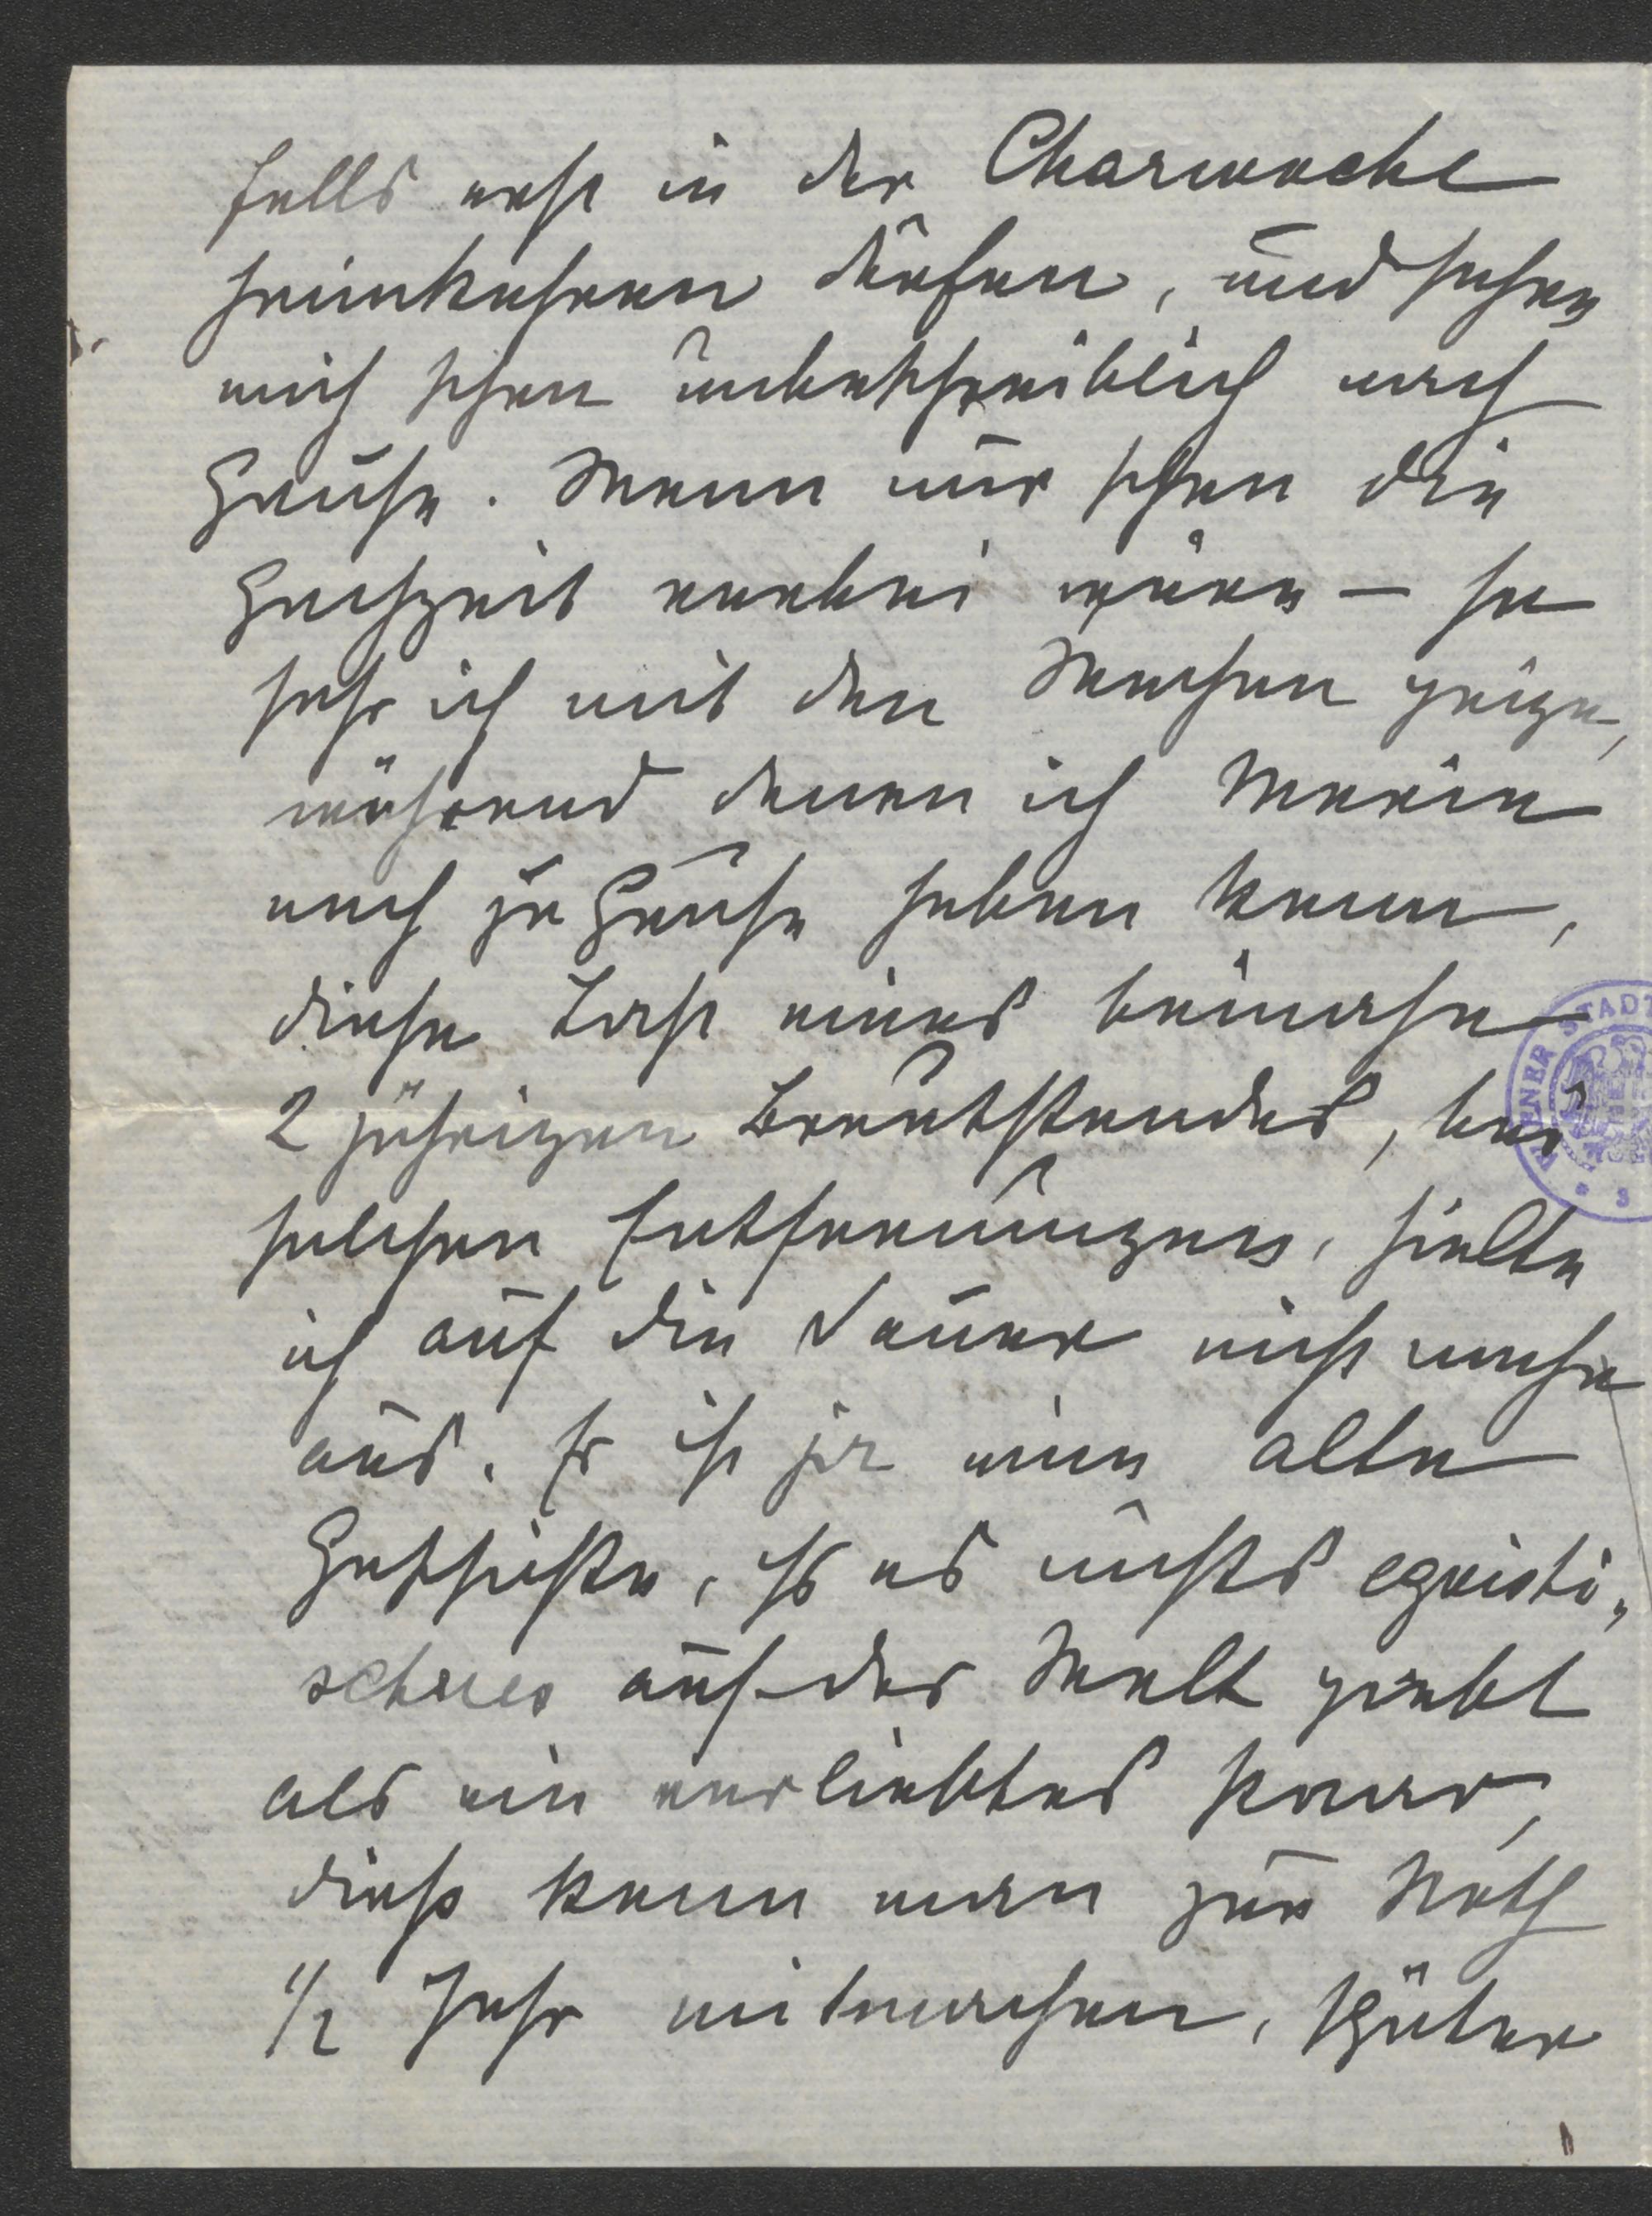 falls erst in der Charwoche
heimkehren dürfen, und sehne
mich schon unbeschreiblich nach
Hause. Wenn nur schon die
Hochzeit vorbei wäre – so
sehr ich mit den Wochen geize,
während denen ich Marie
noch zu Hause haben kann,
diese Last eines beinahe
2 jährigen Brautstandes, bei
solchen Entfernungen, hielte
ich auf die Dauer nicht mehr
aus. Es ist ja eine alte
Geschichte, daß es nichts egoisti„
scheres auf der Welt giebt
als ein verliebtes Paar,
dieß kann man zur Noth
1/2 Jahr mitmachen, später
WIENER STADT